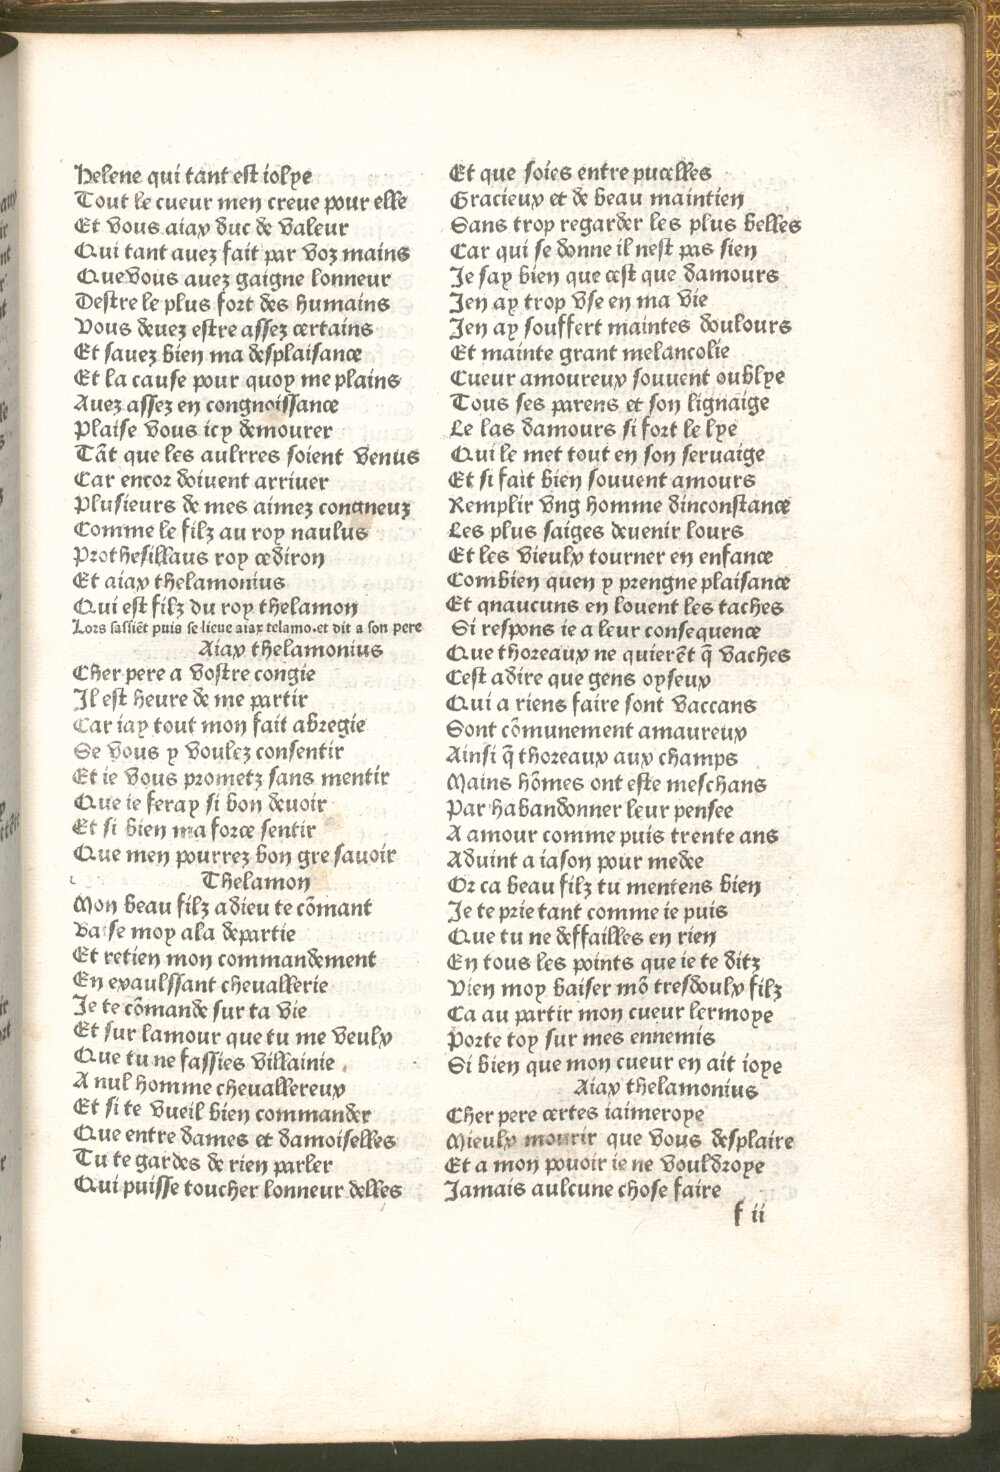 Helene qui tant est iolye
Tout le cueur men creue pour elle
Et vous aiax duc de valeur
Qui tant auez fait par voz mains
Quevous auez gaigne lonneur
Destre le plus fort des humains
Vous deuez estre assez certains
Et sauez bien ma desplaisance
Et la cause pour quoy me plains
Auez assez en congnoissance
Plaise vous icy demourer
Tāt que les aulrres soient venus
Car encor doiuent arriuer
Plusieurs de mes aimez congneuz
Comme le filz au roy naulus
Prothesillaus roy cediron
Et aiax thelamonius
Qui est filz du roy thelamon
Lors sassiēt puis se lieue aiax telamo. et dit a son pere
Aiax thelamonius
Cher pere a vostre congie
Il est heure de me partir
Car iay tout mon fait abregie
Se vous y voulez consentir
Et ie vous prometz sans mentir
Que ie feray si bon deuoir
Et si bien ma force sentir
Que men pourrez bon gre sauoir
Thelamon
Mon beau filz adieu te cōmant
Baise moy ala departie
Et retien mon commandement
En exaulssant cheuallerie
Je te cōmande sur ta vie
Et sur lamour que tu me veulx
Que tu ne fassies villainie
A nul homme cheuallereux
Et si te vueil bien commander
Que entre dames et damoiselles
Tu te gardes de rien parler
Qui puisse toucher lonneur delles
Et que soies entre pucelles
Gracieux et de beau maintien
Sans trop regarder les plus belles
Car qui se donne il nest pas sien
Je say bien que cest que damours
Jen ay trop vse en ma vie
Jen ay souffert maintes doulours
Et mainte grant melancolie
Cueur amoureux souuent oublye
Tous ses parens et son lignaige
Le las damours si fort le lye
Qui le met tout en son seruaige
Et si fait bien souuent amours
Remplir vng homme dinconstance
Les plus saiges deuenir lours
Et les vieulx tourner en enfance
Combien quen y prengne plaisance
Et qnaucuns en louent les taches
Si respons ie a leur consequence
Que thoreaux ne quierēt q̄ vaches
Cest adire que gens oyseux
Qui a riens faire sont vaccans
Sont cōmunement amaureux
Ainsi q̄ thoreaux aux champs
Mains hōmes ont este meschans
Par habandonner leur pensee
A amour comme puis trente ans
Aduint a iason pour medee
Or ca beau filz tu mentens bien
Je te prie tant comme ie puis
Que tu ne deffailles en rien
En tous les points que ie te ditz
Vien moy baiser mō tresdoulx filz
Ca au partir mon cueur lermoye
Porte toy sur mes ennemis
Si bien que mon cueur en ait ioye
Aiax thelamonius
Cher pere certes iaimeroye
Mieulx mourir que vous desplaire
Et a mon pouoir ie ne vouldroye
Jamais aulcune chose faire
f ii